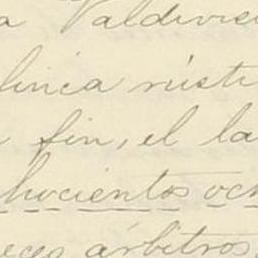 a Valdivies
linca rústi
fin, el la
hocientos och
eces árbitros,